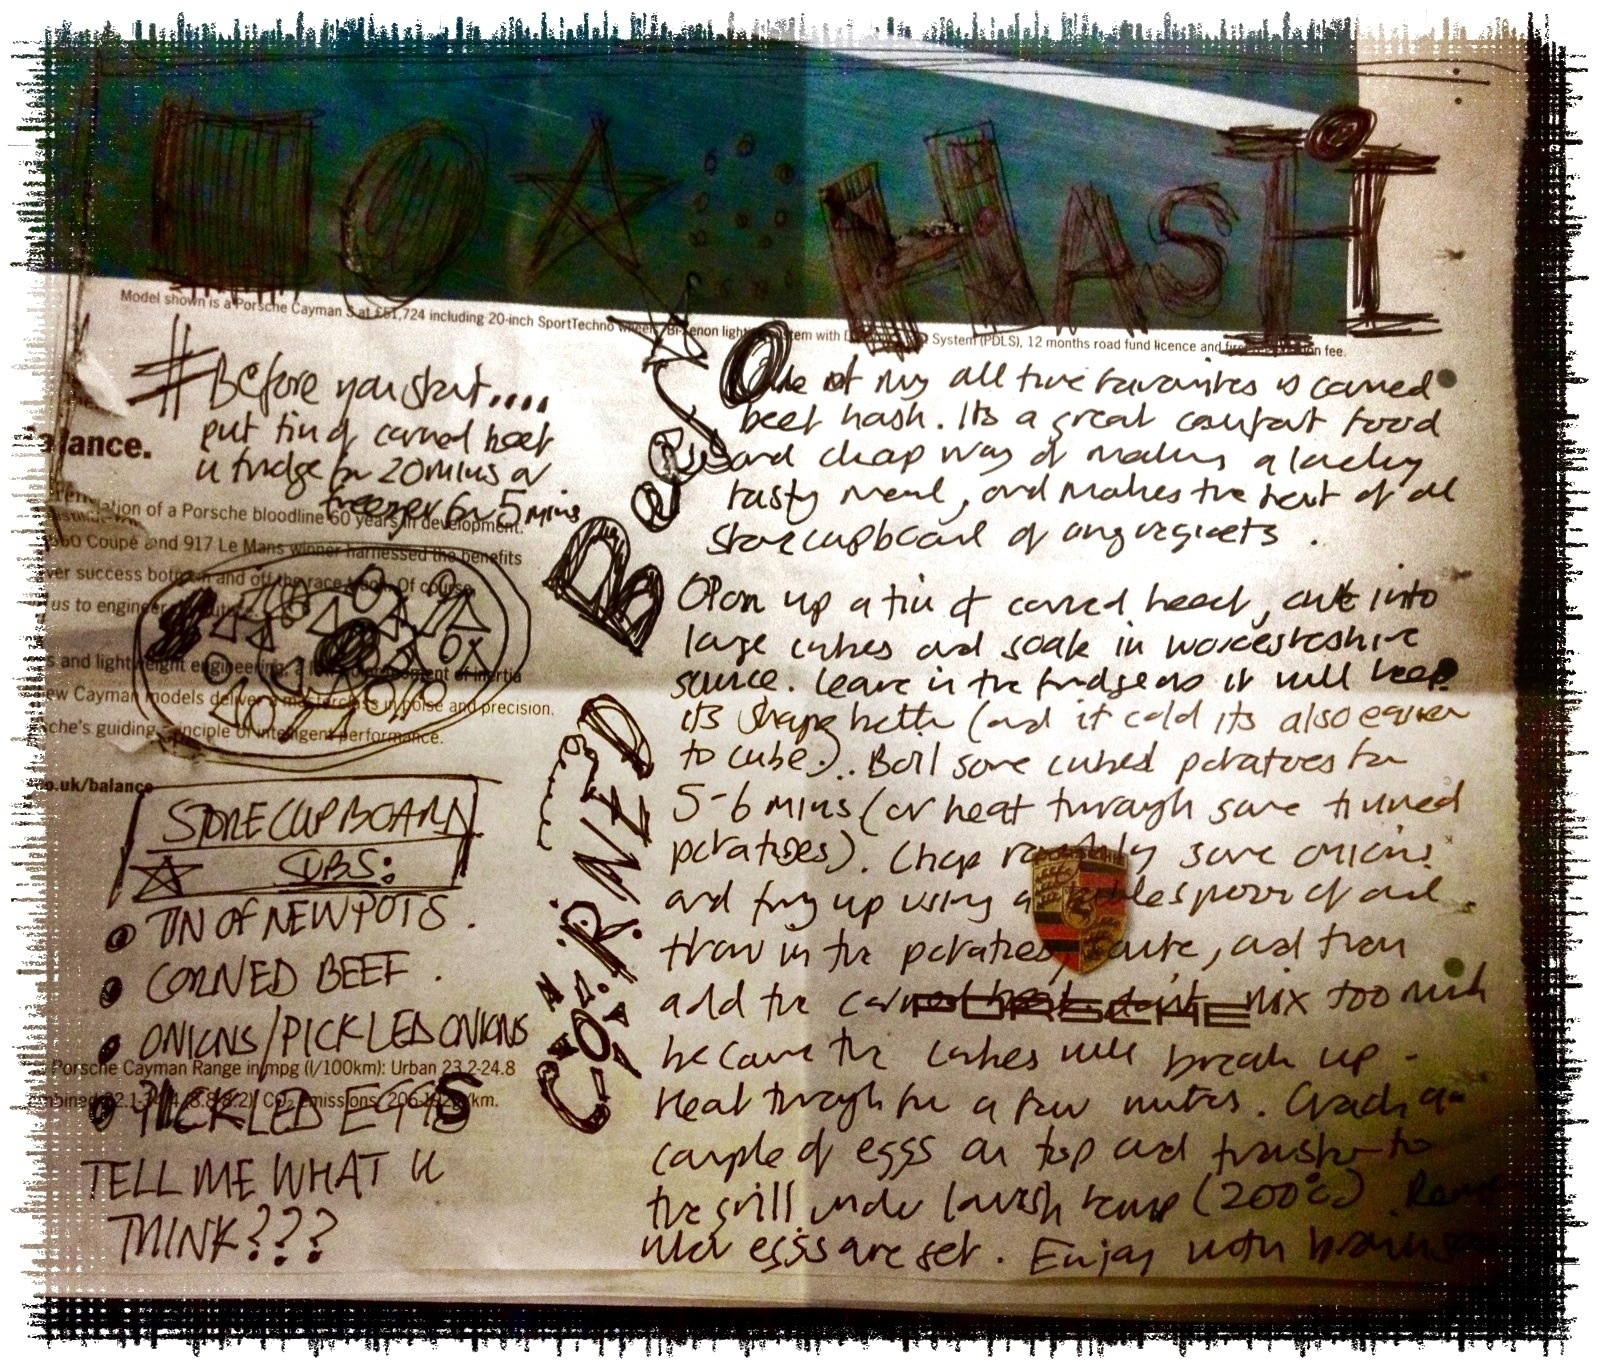 HASH
Model shown is a Porsche Cayman S at £51,724 including 20-inch SportTechno wheels, Bi-Xenon light system with System (PDLS), 12 months road fund licence and first fee.
# Before you start....
put tin of corned beef
in fridge for 20 mins or
freezer for 5 mins
balance.
of a Porsche bloodline 60 years in development.
Coupé and 917 Le Mans winner harnessed the benefits
success both on and off the race track. Of course
us to engineer
and lightweight engineering, a moment of inertia
new Cayman models deliver a masterclass in poise and precision.
guiding principle of intelligent performance.
co.uk/balance
STORECUPBOARD
SUBS:
TIN OF NEW POTS.
CORNED BEEF.
ONIONS/PICKLED ONIONS
Porsche Cayman Range in mpg (l/100km): Urban 23.2-24.8
PICKLED EGGS
emissions: km.
TELL ME WHAT U
THINK???
CORNED BEEF
One of my all time favourites is corned
beef hash. Its a great comfort food
and cheap way of making a lovely
tasty meal, and makes the best of all
storecupboard of ingredients.
Open up a tin of corned beef, cut into
large cubes and soak in worcestershire
sauce. Leave in the fridge as it will keep
its shape better (and if cold its also easier
to cube)... Boil some cubed potatoes for
5-6 mins (or heat through some tinned
potatoes). Chop roughly some onions
and fry up using a tablespoon of oil.
throw in the potatoes, saute, and then
add the corned beef, dont mix too much
PORSCHE
because the cubes will break up.
Heat through for a few minutes. Crack a
couple of eggs on top and transfer to
the grill under lowish temp (200°c).
until eggs are set. Enjoy with brown